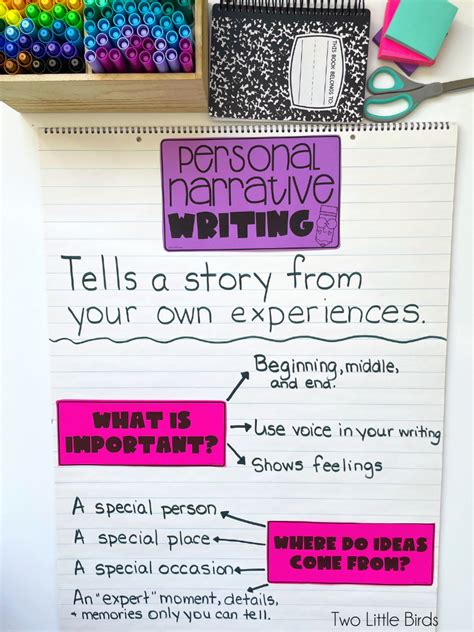 THIS BOOK BELONGS TO:
personal
narrative
WRITING
Tells a story from
your own experiences.
Beginning, middle,
and end.
WHAT IS
IMPORTANT?
Use voice in your writing
Shows feelings
A special person
A special place
A special occasion
An "expert" moment, details,
memories only you can tell.
WHERE DO IDEAS
COME FROM?
Two Little Birds